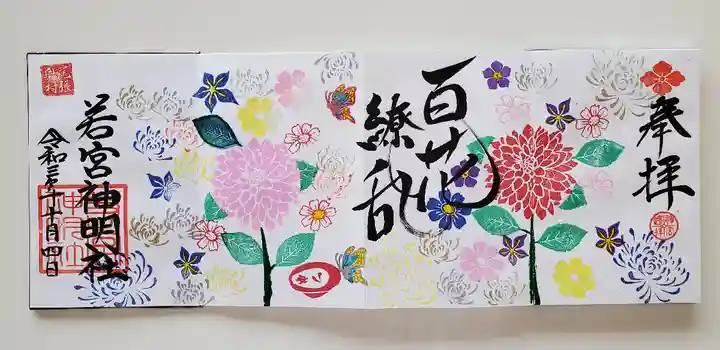 奉拝
百花
繚乱
若宮神明社
令和三年十月四日